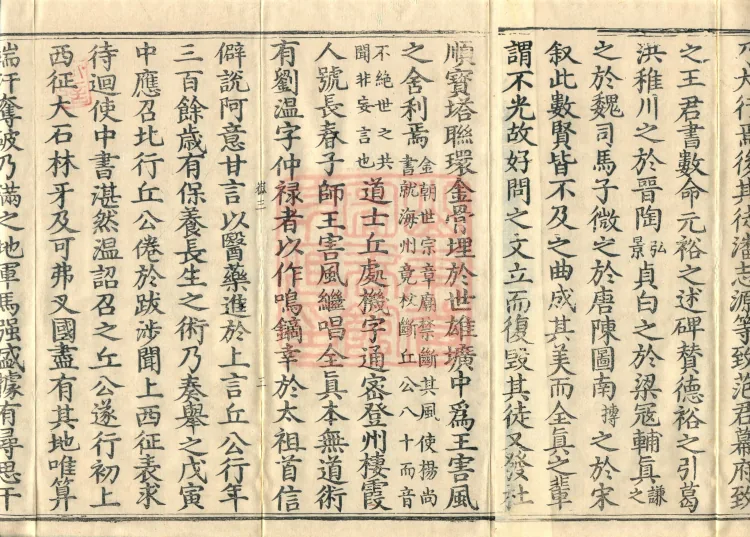 大行焉後其徒潘志源等致范君幕府致
之王君書數命元裕之述碑賛德裕之引葛
洪稚川之於晉陶弘景貞白之於梁寇輔真謙之
之於魏司馬子微之於唐陳圖南摶之於宋
叙此數賢皆不及之曲成其美而全真之輩
謂不光故好問之文立而復毀其徒又發杜
順寶塔聯環金骨埋於世雄壙中爲王害風
之舍利焉金朝世宗章廟禁斷其風使楊尚
書就海州竟杖斷丘公八十而音
不絕世之共
聞非妄言也道士丘處機字通密登州棲霞
人號長春子師王害風繼唱全眞本無道術
有劉温字仲禄者以作鳴鏑幸於太祖首信
僻說阿意甘言以醫藥進於上言丘公行年
三百餘歲有保養長生之術乃奏舉之戊寅
中應召北行丘公倦於跋涉聞上西征表求
待迴使中書湛然温詔召之丘公遂行初上
西征大石林牙及可弗叉國盡有其地唯算
端汗奪破乃滿之地軍馬强盛據有尋思干